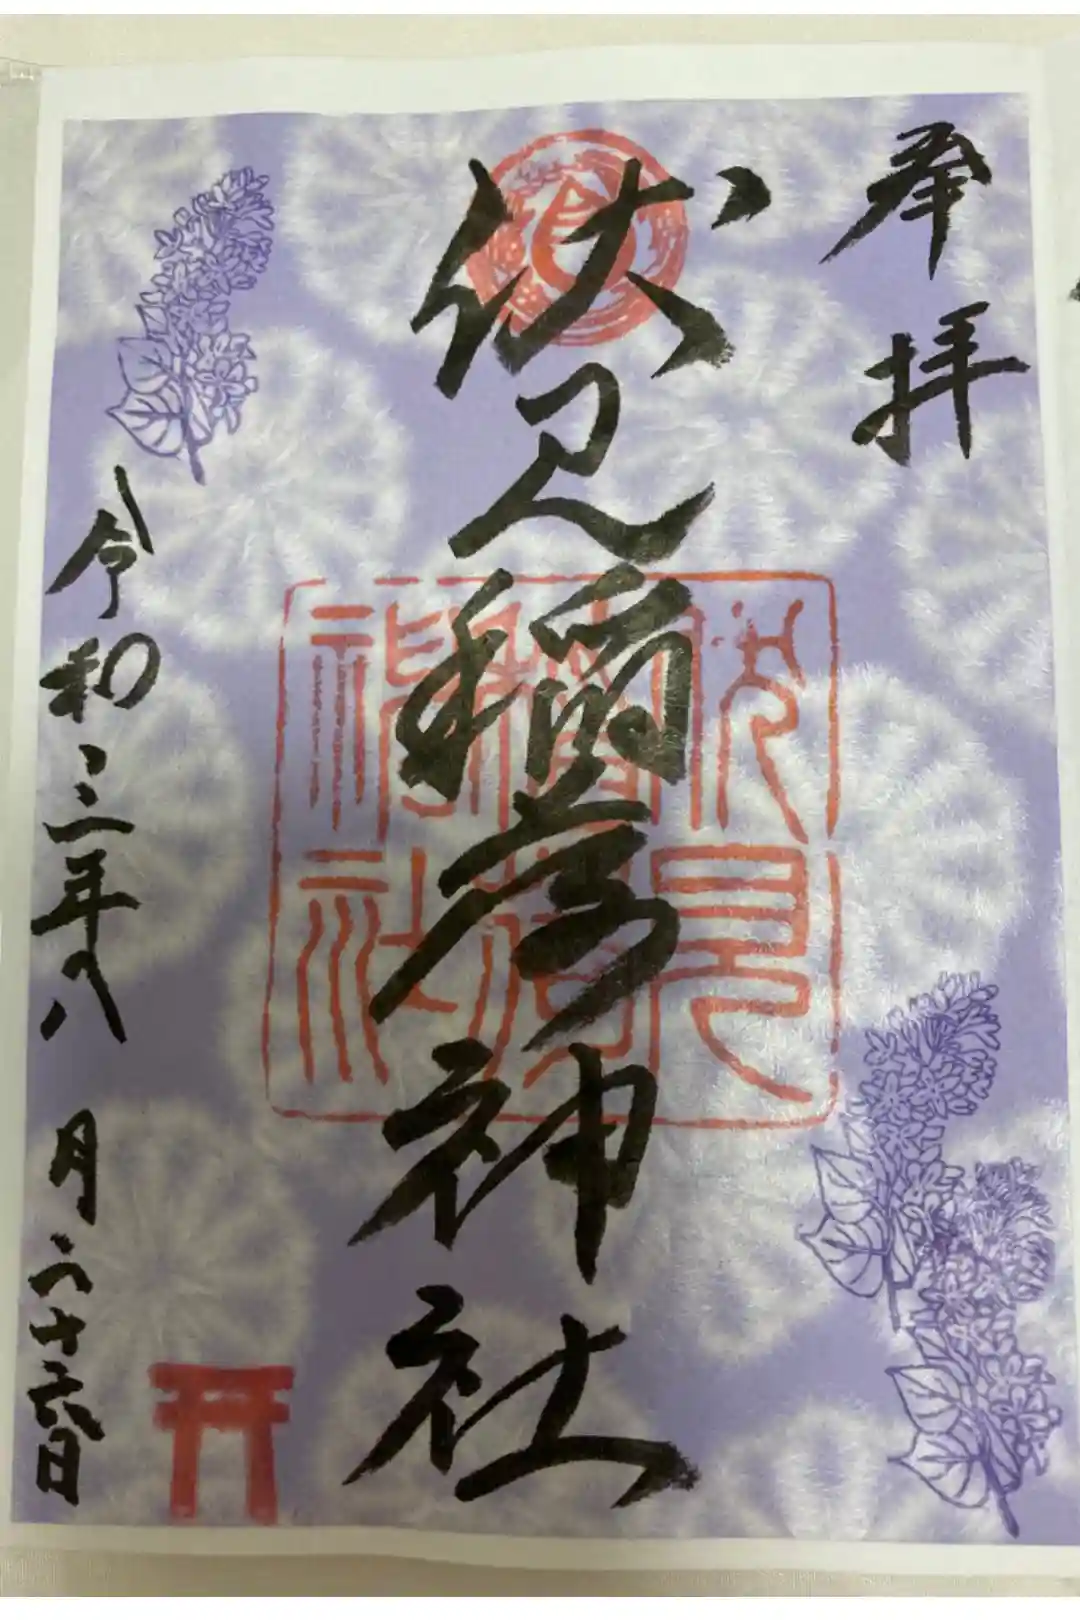 奉拝
伏見稲荷神社
伏見稲荷神社
令和三年八月二十六日